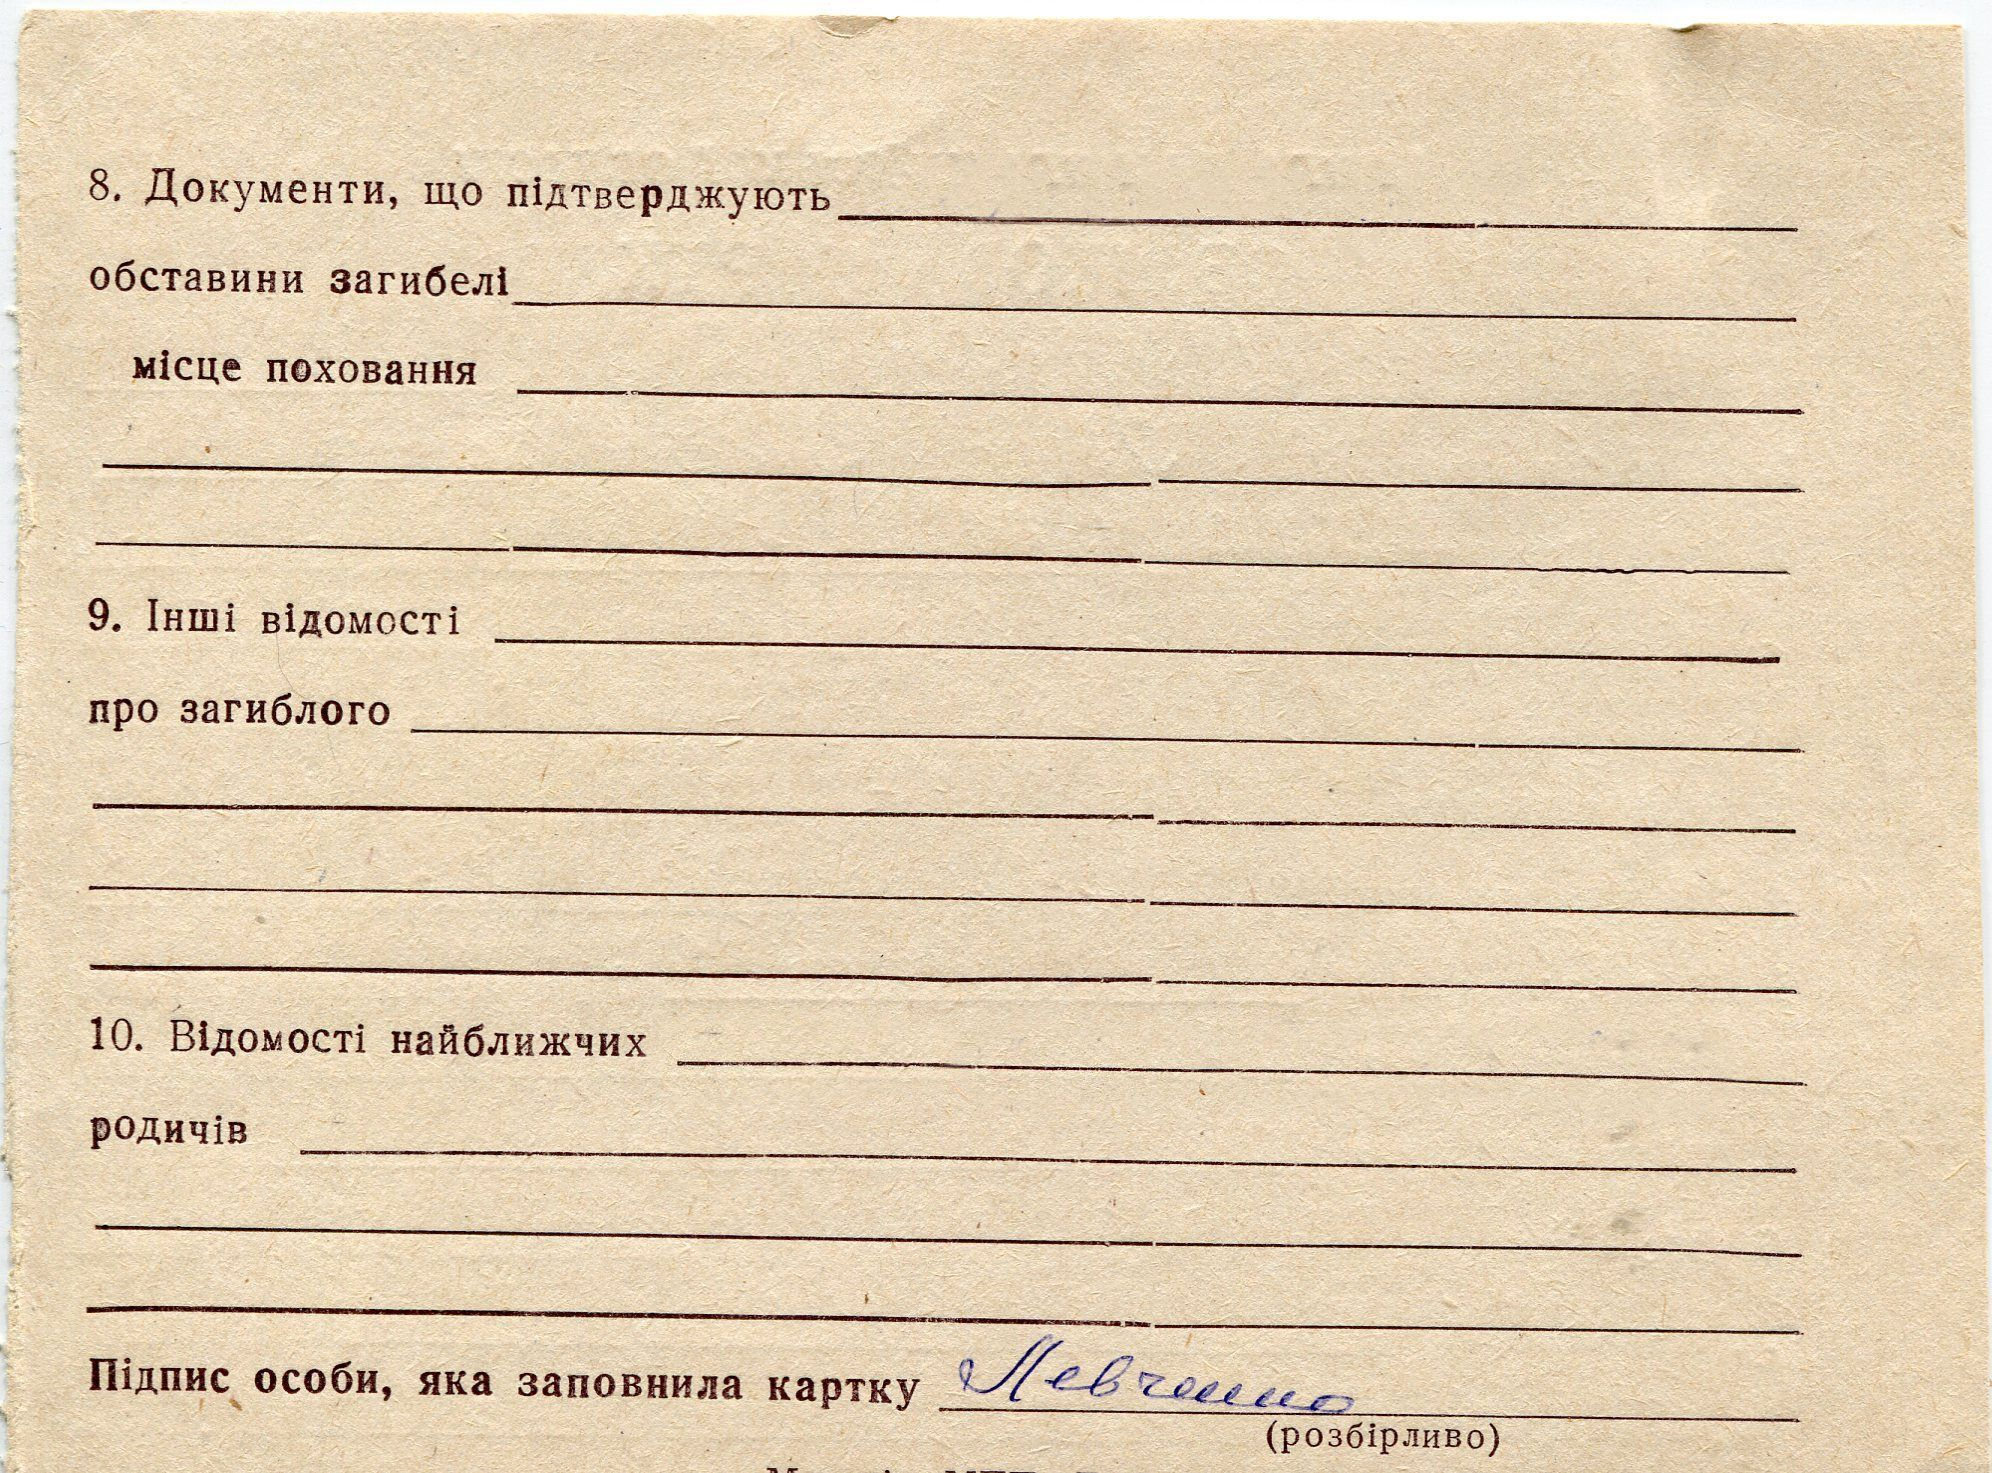 8. Документи, що підтверджують
обставини загибелі
місце поховання
9. Інші відомості
про загиблого
10. Відомості найближчих
родичів
Підпис особи, яка заповнила картку Левченко
(розбірливо)